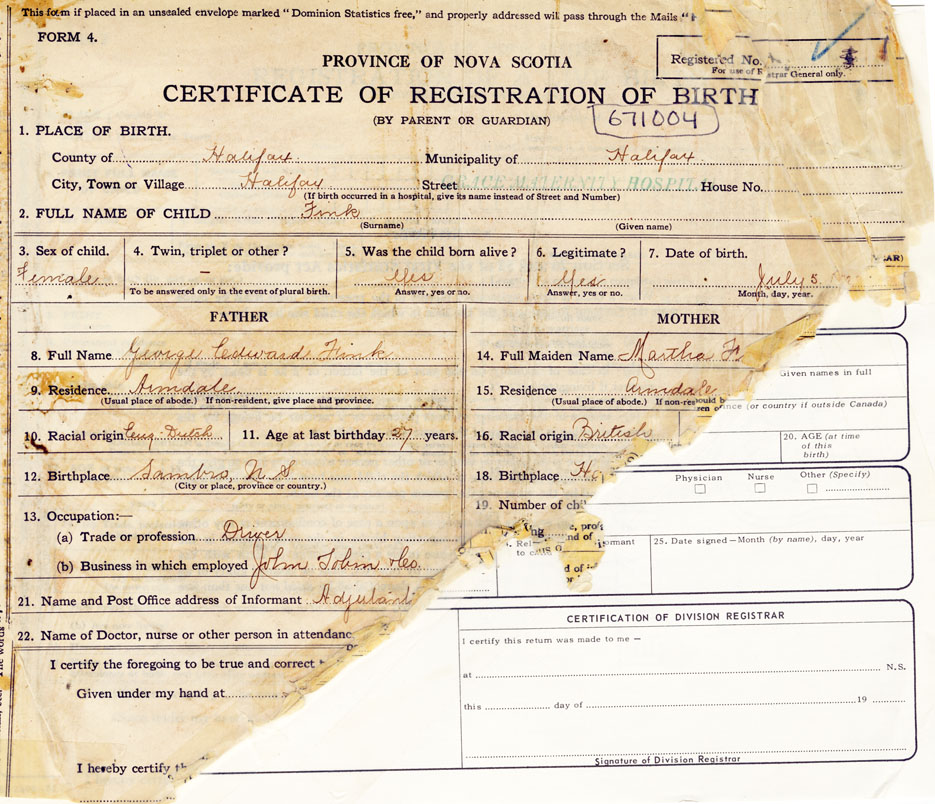 This form if placed in an unsealed envelope marked "Dominion Statistics free," and properly addressed will pass through the Mails "
FORM 4.
PROVINCE OF NOVA SCOTIA
Registered No.
For use of Registrar General only.
CERTIFICATE OF REGISTRATION OF BIRTH
(BY PARENT OR GUARDIAN)
671004
1. PLACE OF BIRTH.
County of Halifax. Municipality of Halifax.
City, Town or Village Halifax Street GRACE MATERNITY HOSPITAL House No.
(If birth occurred in a hospital, give its name instead of Street and Number)
2. FULL NAME OF CHILD Fink
(Surname) (Given name)
3. Sex of child. 4. Twin, triplet or other? 5. Was the child born alive? 6. Legitimate? 7. Date of birth. YEAR)
Female – Yes Yes July 5
To be answered only in the event of plural birth. Answer, yes or no. Answer, yes or no. Month, day, year.
FATHER MOTHER
8. Full Name George Edward Fink 14. Full Maiden Name Martha
Given names in full
9. Residence. Armdale 15. Residence Armdale
(Usual place of abode.) If non-resident, give place and province. (Usual place of abode.) If non-res
(or country if outside Canada)
10. Racial origin Eng. Dutch 11. Age at last birthday 27 years. 16. Racial origin British 20. AGE (at time
of this
birth)
12. Birthplace Sambro, N S 18. Birthplace
(City or place, province or country.)
Physician Nurse Other (Specify)
19. Number of
13. Occupation:—
(a) Trade or profession Driver
25. Date signed – Month (by name), day, year
(b) Business in which employed John Tobin & Co.
21. Name and Post Office address of Informant Adjutant
CERTIFICATION OF DIVISION REGISTRAR
22. Name of Doctor, nurse or other person in attendanc
I certify this return was made to me –
I certify the foregoing to be true and correct
at N.S.
Given under my hand at
this day of 19
Signature of Division Registrar
I hereby certify